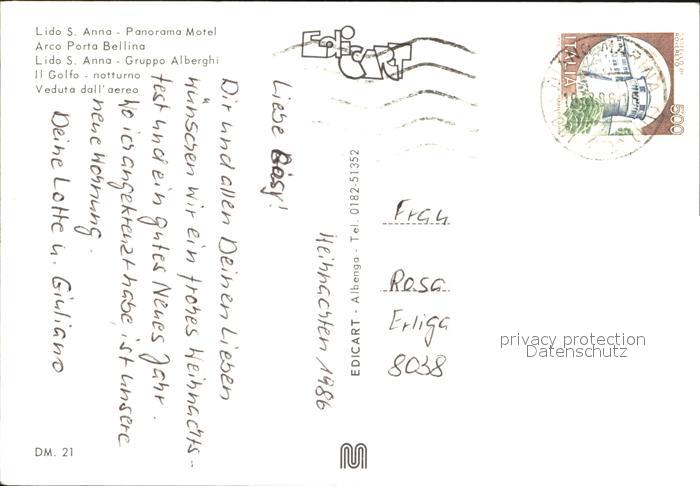 Lido S. Anna - Panorama Motel
Arco Porta Bellina
Lido S. Anna - Gruppo Alberghi
Il Golfo - notturno
Veduta dall'aereo
EdicART
ITALIA
500
Weihnachten 1986
Liebe Rösy!
Dir und allen Deinen Lieben
wünschen wir ein frohes Weihnachts-
fest und ein gutes Neues Jahr.
Wo ich angekreuzt habe, ist unsere
neue Wohnung.
Deine Lotte u. Giuliano
EDICART - Albenga - Tel. 0182-51352
Frau
Rosa
Erliga
8038
privacy protection
Datenschutz
DM. 21